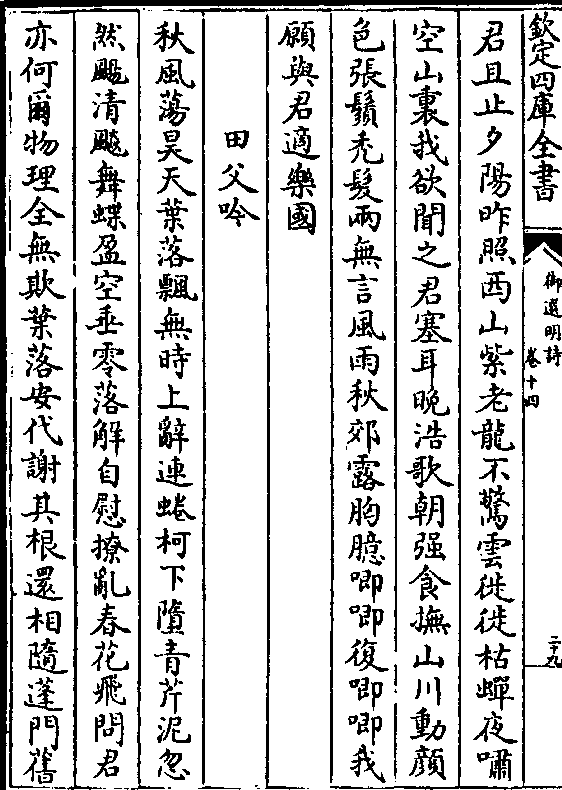 欽定四庫全書
御選明詩
卷十四
二十九
君且止夕陽昨照西山紫老龍不驚雲徙徙枯蟬夜嘯
空山裏我欲聞之君塞耳晚浩歌朝强食撫山川動顔
色張鬚禿髮兩無言風雨秋郊露胸臆唧唧復唧唧我
願與君適樂國
田父吟
秋風蕩昊天葉落飄無時上辭連蜷柯下墮青芹泥忽
然颺清飈舞蝶盈空垂零落解自慰撩亂春花飛問君
亦何爾物理全無欺葉落安代謝其根還相隨蓬門舊